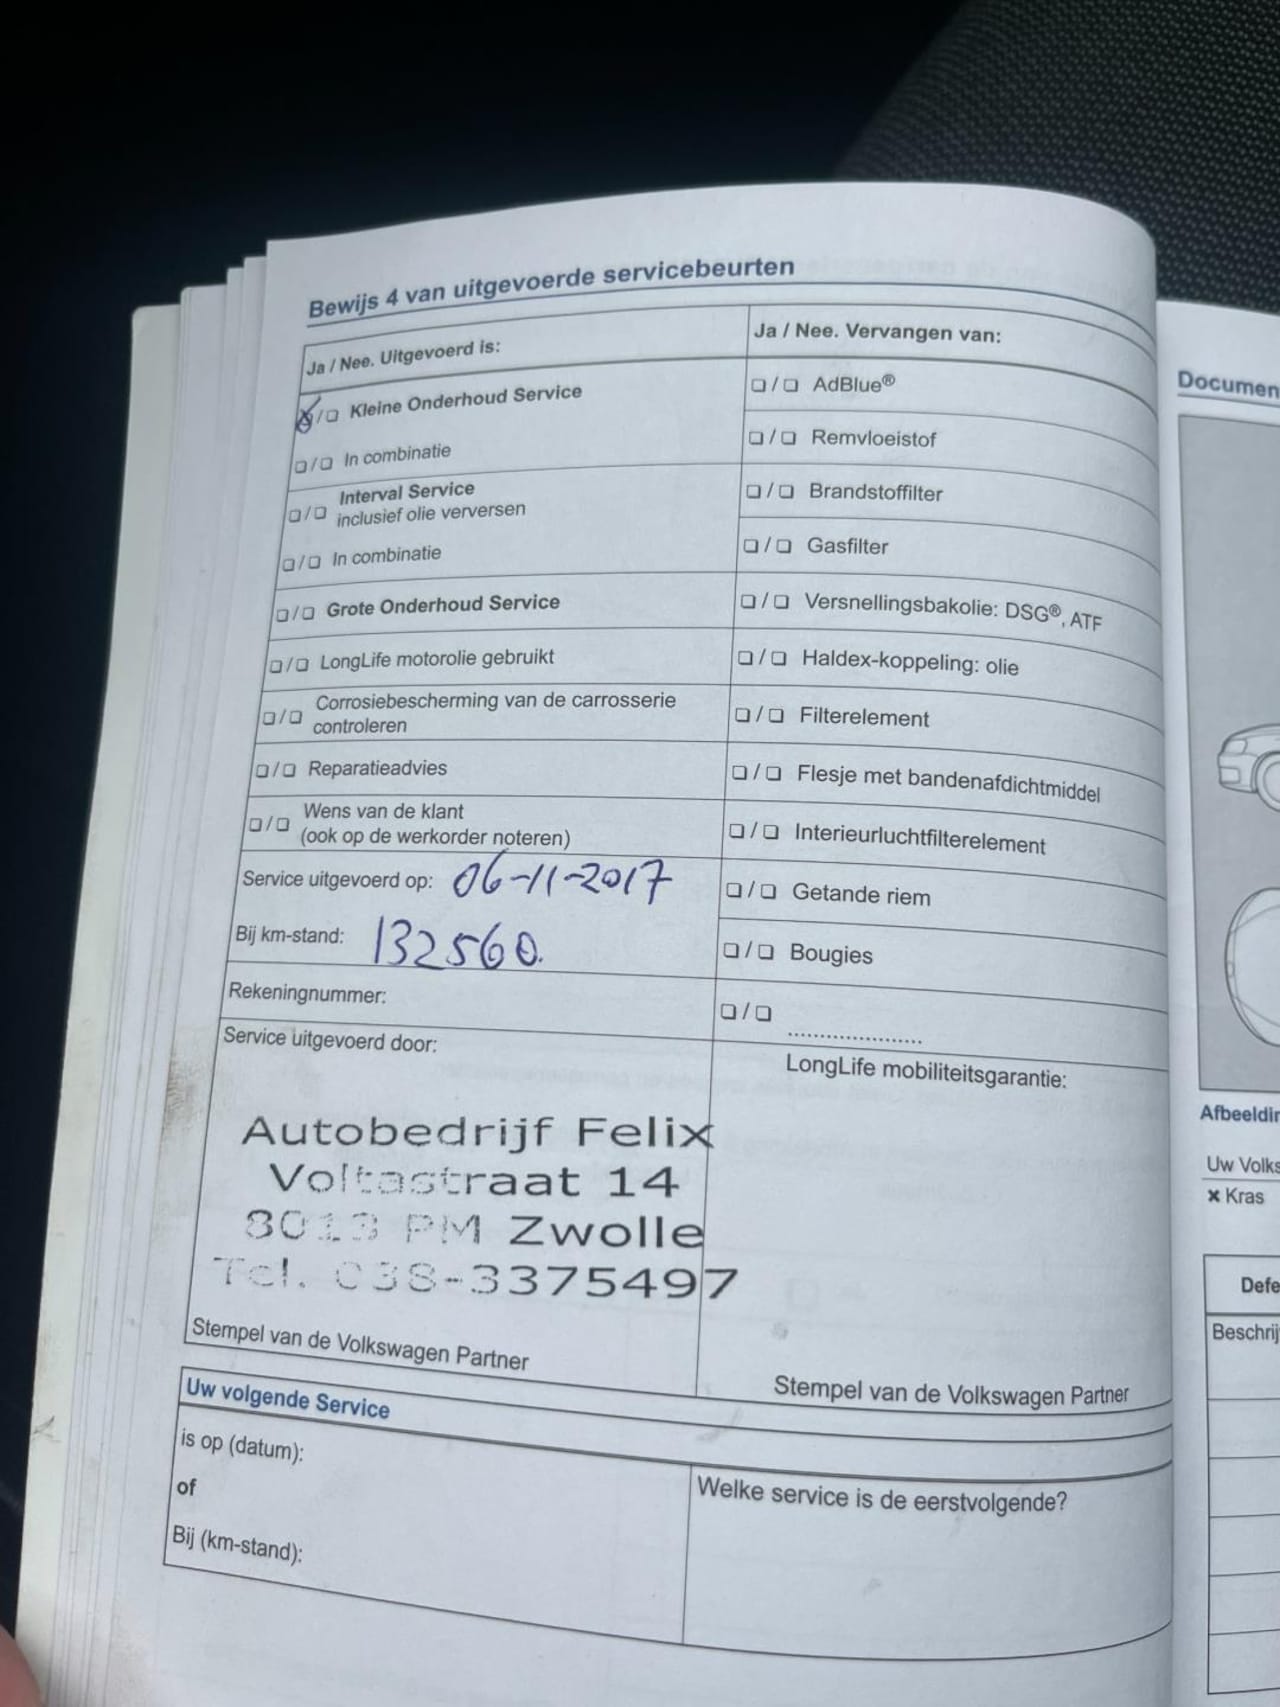 Bewijs 4 van uitgevoerde servicebeurten
Ja / Nee. Uitgevoerd is:
❏/❏ Kleine Onderhoud Service
❏/❏ In combinatie
❏/❏ Interval Service
inclusief olie verversen
❏/❏ In combinatie
❏/❏ Grote Onderhoud Service
❏/❏ LongLife motorolie gebruikt
❏/❏ Corrosiebescherming van de carrosserie
controleren
❏/❏ Reparatieadvies
❏/❏ Wens van de klant
(ook op de werkorder noteren)
Service uitgevoerd op: 06-11-2017
Bij km-stand: 132560.
Rekeningnummer:
Service uitgevoerd door:
Autobedrijf Felix
Voltastraat 14
8013 PM Zwolle
Tel. 038-3375497
Stempel van de Volkswagen Partner
Ja / Nee. Vervangen van:
❏/❏ AdBlue®
❏/❏ Remvloeistof
❏/❏ Brandstoffilter
❏/❏ Gasfilter
❏/❏ Versnellingsbakolie: DSG®, ATF
❏/❏ Haldex-koppeling: olie
❏/❏ Filterelement
❏/❏ Flesje met bandenafdichtmiddel
❏/❏ Interieurluchtfilterelement
❏/❏ Getande riem
❏/❏ Bougies
❏/❏ .....................
LongLife mobiliteitsgarantie:
Stempel van de Volkswagen Partner
Uw volgende Service
is op (datum):
of
Bij (km-stand):
Welke service is de eerstvolgende?
Documen
Afbeeldin
Uw Volks
× Kras
Defe
Beschrij